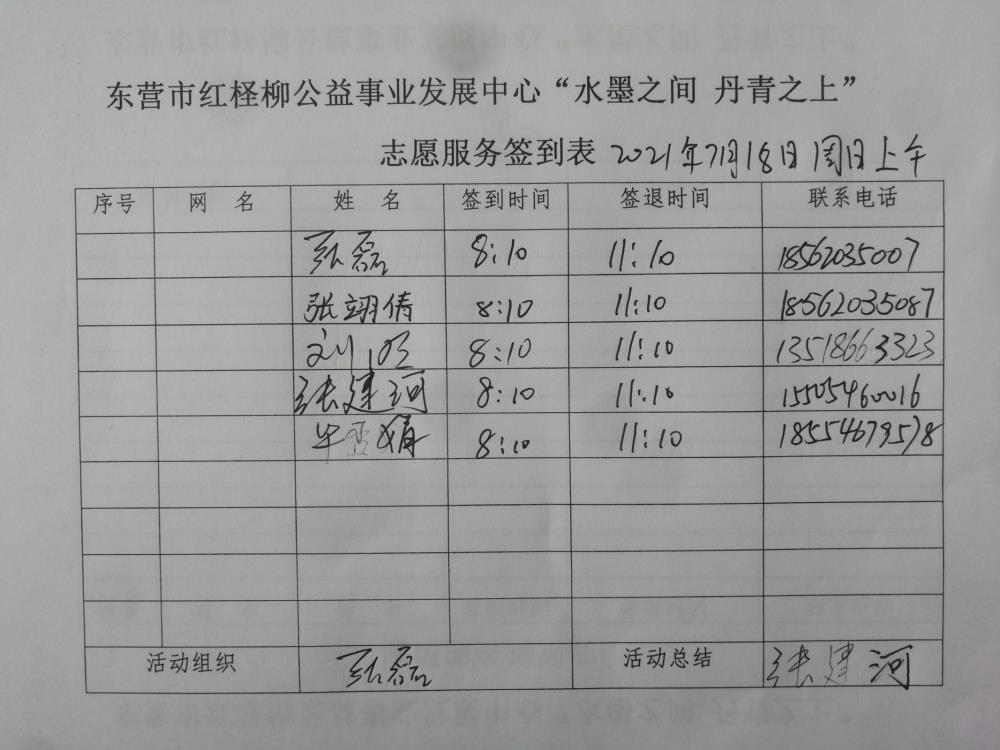 东营市红柽柳公益事业发展中心“水墨之间 丹青之上”
志愿服务签到表 2021年7月18日 周日上午
序号 网 名 姓 名 签到时间 签退时间 联系电话
张磊 8:10 11:10 18562035007
张翊倩 8:10 11:10 18562035087
刘明 8:10 11:10 13518663323
张建河 8:10 11:10 15505460016
毕 娟 8:10 11:10 18554679578
活动组织 张磊 活动总结 张建河